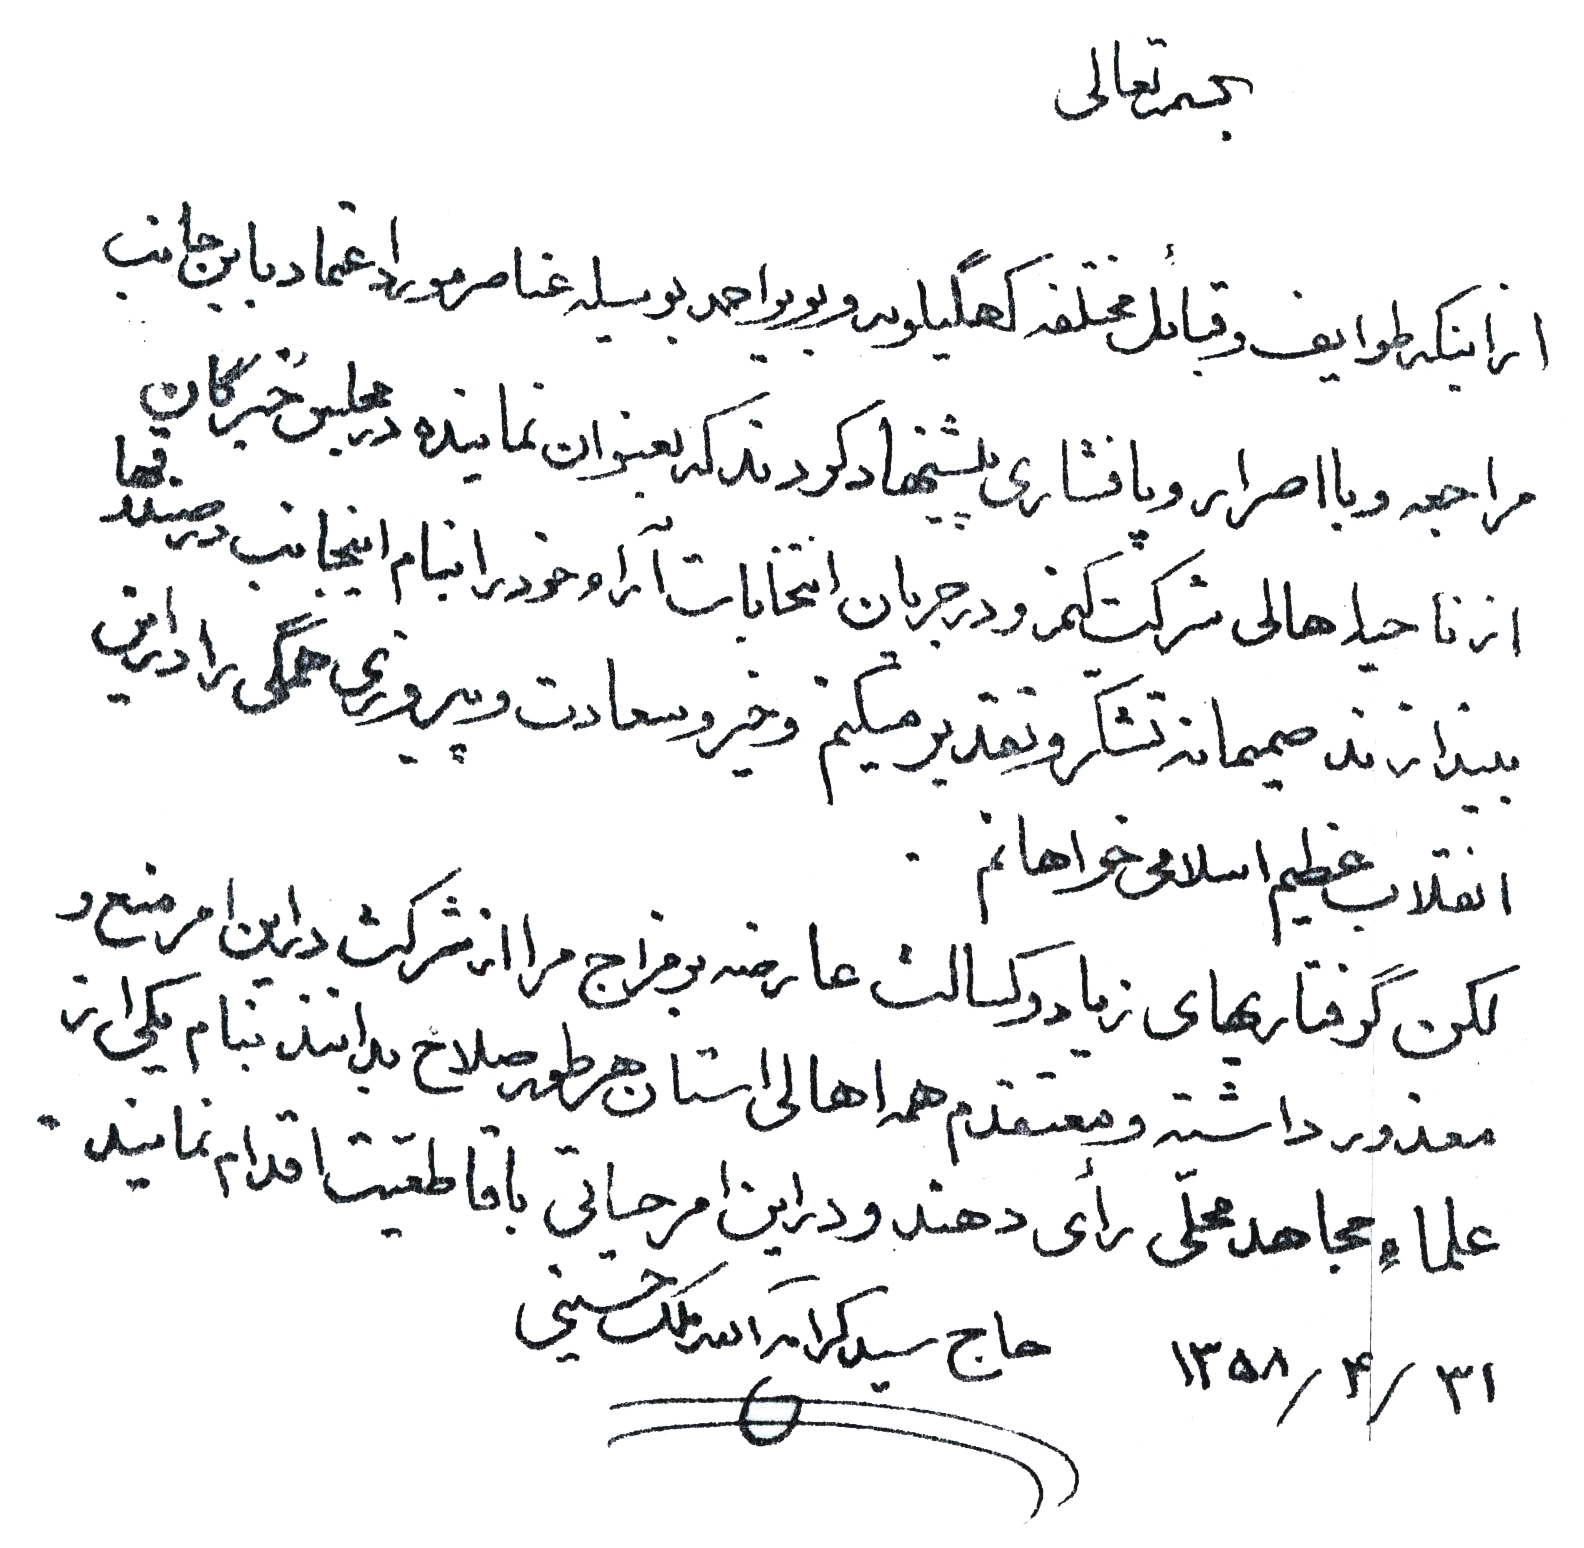 بسمه تعالی
از اینکه طوایف و قبائل مختلفه کهگیلویه و بویراحمد بوسیله عناصر مورد اعتماد باین جانب
مراجعه و با اصرار و پافشاری پیشنهاد کردند که بعنوان نماینده در مجلس خبرگان
از ناحیه اهالی شرکت کنم و در جریان انتخابات آراء خود را بنام اینجانب در صندوقها
بیندازند صمیمانه تشکّر و تقدیر میکنم و خیر و سعادت و پیروزی همگی را در این
انقلاب عظیم اسلامی خواهانم .
لکن گرفتاریهای زیاد و کسالت عارضه بر مزاج مرا از شرکت در این امر منع و
معذور داشته و معتقدم همه اهالی استان هر طور صلاح بدانند بنام یکی از
علماء مجاهد محلّی رأی دهند و در این امر حیاتی با قاطعیّت اقدام نمایند .
۳۱ / ۴ / ۱۳۵۸ حاج سید کرامة الله ملک حسینی